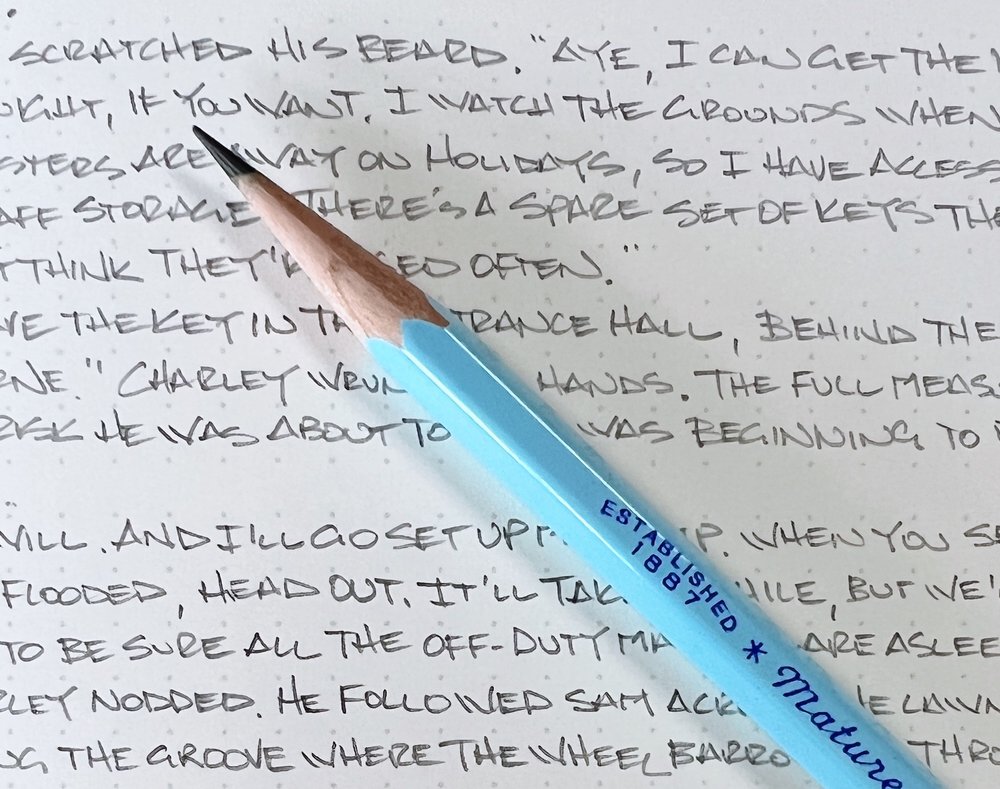 SCRATCHED HIS BEARD. "AYE, I CAN GET THE
IF YOU WANT. I WATCH THE GROUNDS WHEN
ARE AWAY ON HOLIDAYS, SO I HAVE ACCESS
STORAGE. THERE'S A SPARE SET OF KEYS
THINK THEY'RE USED OFTEN."
THE KEY IN THE ENTRANCE HALL, BEHIND THE
" CHARLEY WRUNG HANDS. THE FULL
HE WAS ABOUT TO WAS BEGINNING TO
WILL. AND I'LL GO SET UP WHEN YOU
FLOODED, HEAD OUT. IT'LL TAKE WHILE, BUT
TO BE SURE ALL THE OFF-DUTY ARE ASLEE
NODDED. HE FOLLOWED SAM
THE GROOVE WHERE THE WHEEL BARRO THRO
ESTABLISHED
1887
* Mature